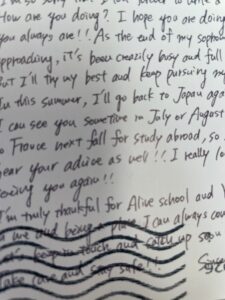 How are you doing? I hope you are doing
you always are!! As the end of my sophom
approaching, it's been creazily busy and full
But I'll try my best and keep pursuing my
In this summer, I'll go back to Japan again
I can see you sometime in July or August
to France next fall for study abroad, so
hear your advice as well!! I really lo
seeing you again!!
I'm truly thankful for Alive school and
me and being a place I can always cou
Let's keep in touch and catch up soon
Take care and stay safe!!